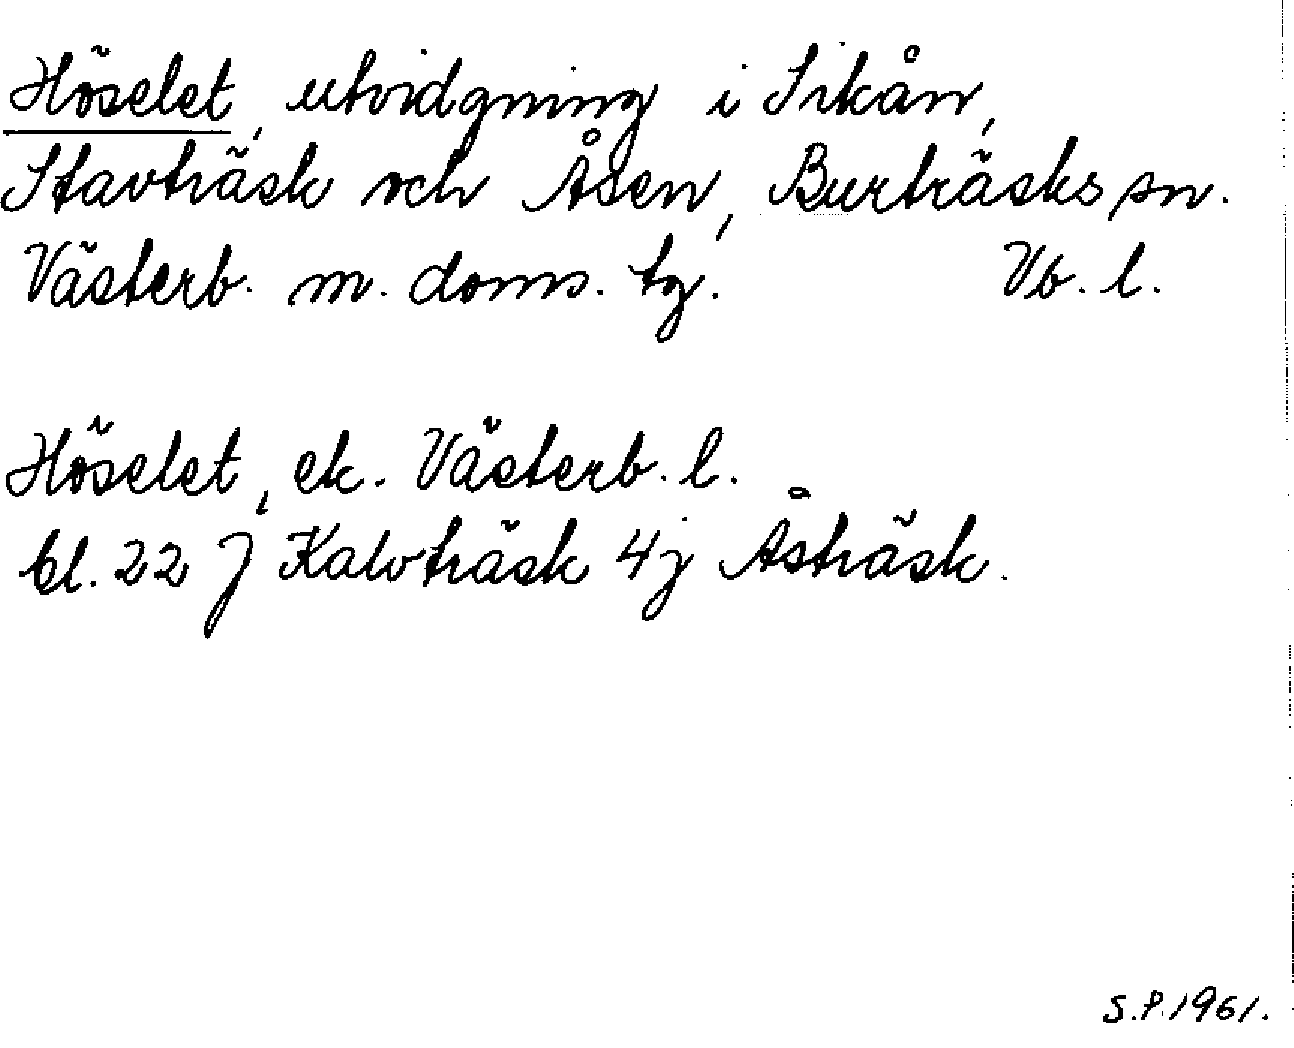 Höselet, utvidgning i Sikån,
Stavträsk och Åsen, Burträsks sn.
Västerb. m. doms. tg. Vb. l.
Höselet, ek. Västerb. l.
bl. 22 J Kalvträsk 4j Åsträsk.
S.P. 1961.